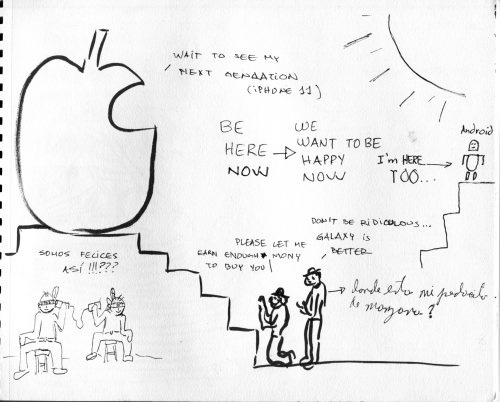 WAIT TO SEE MY
NEXT GENERATION
(iPHONE 11)
BE
HERE
NOW
WE
WANT TO BE
HAPPY
NOW
I'm HERE
TOO...
Android
SOMOS FELICES
ASÍ !!!???
PLEASE LET ME
EARN ENOUGH MONY
TO BUY YOU!
DON'T BE RIDICULOUS...
GALAXY is
BETTER
donde esta mi pedacito
de manzana?